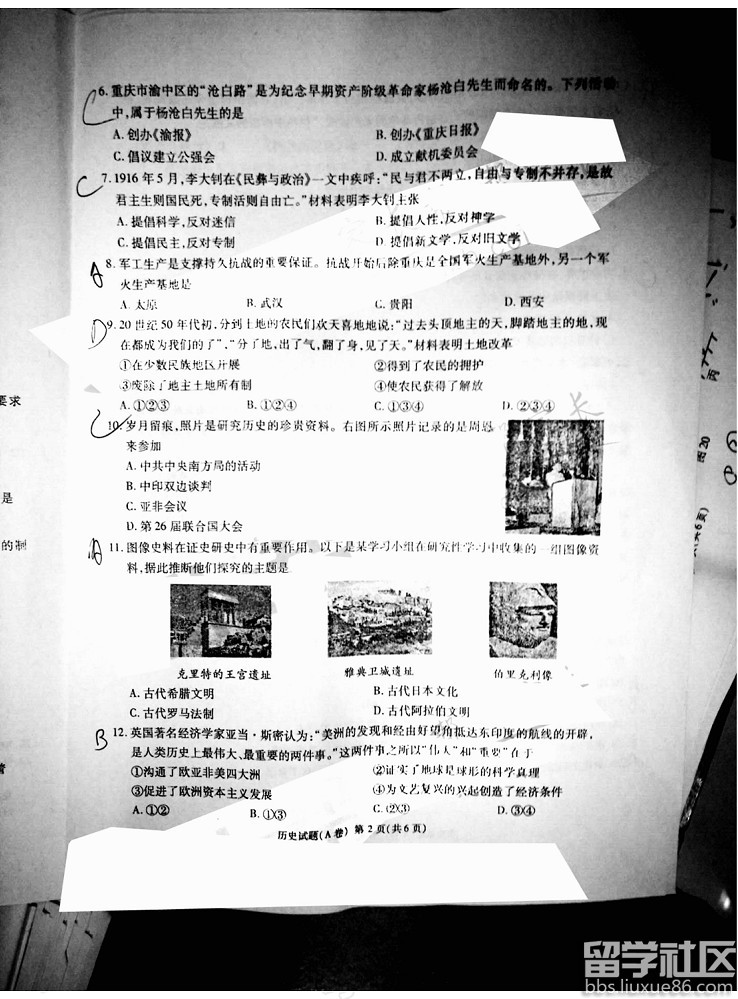 C
6. 重庆市渝中区的“沧白路”是为纪念早期资产阶级革命家杨沧白先生而命名的。下列活动
中,属于杨沧白先生的是
A. 创办《渝报》 B. 创办《重庆日报》
C. 倡议建立公强会 D. 成立献机委员会
C
7. 1916年5月,李大钊在《民彝与政治》一文中疾呼:“民与君不两立,自由与专制不并存,是故
君主生则国民死,专制活则自由亡。”材料表明李大钊主张
A. 提倡科学,反对迷信 B. 提倡人性,反对神学
C. 提倡民主,反对专制 D. 提倡新文学,反对旧文学
A
8. 军工生产是支撑持久抗战的重要保证。抗战开始后除重庆是全国军火生产基地外,另一个军
火生产基地是
A. 太原 B. 武汉 C. 贵阳 D. 西安
D
9. 20世纪50年代初,分到土地的农民们欢天喜地地说:“过去头顶地主的天,脚踏地主的地,现
在都成为我们的了”,“分了地,出了气,翻了身,见了天。”材料表明土地改革
①在少数民族地区开展 ②得到了农民的拥护
③废除了地主土地所有制 ④使农民获得了解放
A. ①②③ B. ①②④ C. ①③④ D. ②③④
C
10. 岁月留痕,照片是研究历史的珍贵资料。右图所示照片记录的是周恩
来参加
A. 中共中央南方局的活动
B. 中印双边谈判
C. 亚非会议
D. 第26届联合国大会
A
11. 图像史料在证史研史中有重要作用。以下是某学习小组在研究性学习中收集的一组图像资
料,据此推断他们探究的主题是
克里特的王宫遗址 雅典卫城遗址 伯里克利像
A. 古代希腊文明 B. 古代日本文化
C. 古代罗马法制 D. 古代阿拉伯文明
B
12. 英国著名经济学家亚当·斯密认为:“美洲的发现和经由好望角抵达东印度的航线的开辟,
是人类历史上最伟大、最重要的两件事。”这两件事之所以“伟大”和“重要”在于
①沟通了欧亚非美四大洲 ②证实了地球是球形的科学真理
③促进了欧洲资本主义发展 ④为文艺复兴的兴起创造了经济条件
A. ①② B. ①③ C. ②③ D. ③④
历史试题(A卷) 第2页(共6页)
要求
是
的制
两
图20
共6页)
留学社区
bbs.liuxue86.com